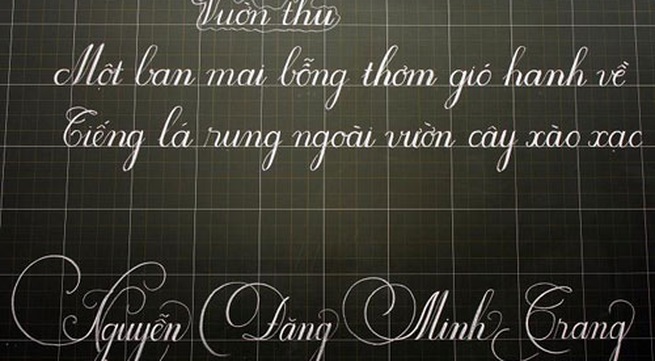 Vườn thu
Một ban mai bỗng thơm gió hanh về
Tiếng lá rung ngoài vườn cây xào xạc
Nguyễn Đăng Minh Trang